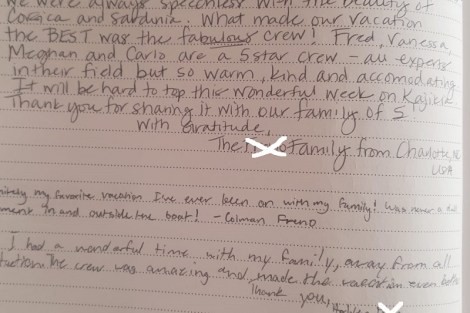 we were always speechless with the beauty of
Corsica and Sardinia. What made our vacation
the BEST was the fabulous crew! Fred, Vanessa,
Meghan and Carlo are a 5 star crew - all experts
in their field but so warm, kind and accomodating
It will be hard to top this wonderful week on
Thank you for sharing it with our family of 5
With Gratitude,
The Family from Charlotte, NC
USA
my favorite vacation I've ever been on with my family! Was never a
ment in and outside the boat! - Colman
I had a wonderful time with my family, away from all
The crew was amazing and made the vacation even
Thank you,